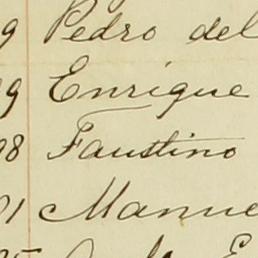 9 Pedro del
9 Enrique
98 Faustino
91 Manue